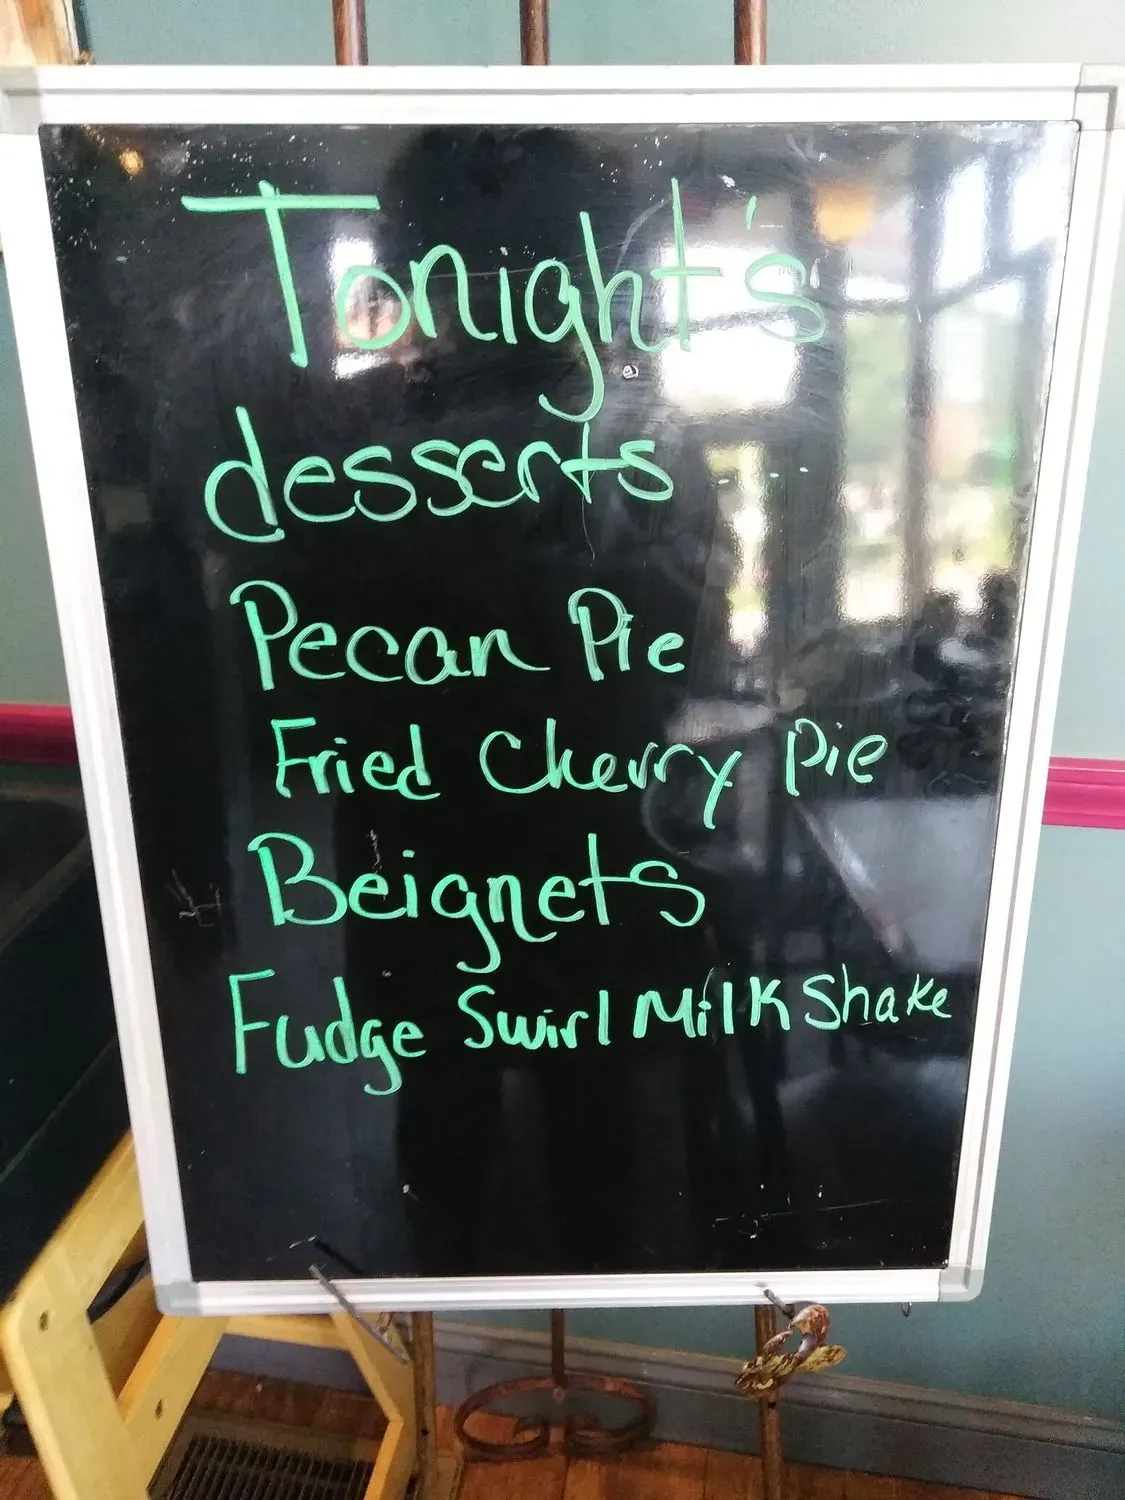 Tonight's
desserts
Pecan Pie
Fried Cherry Pie
Beignets
Fudge Swirl Milk Shake